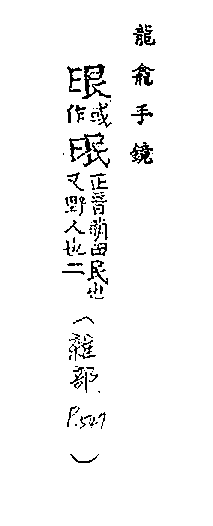 龍龕手鏡
或作
正音萌田民也
又野人也二
(雜部 P.547)